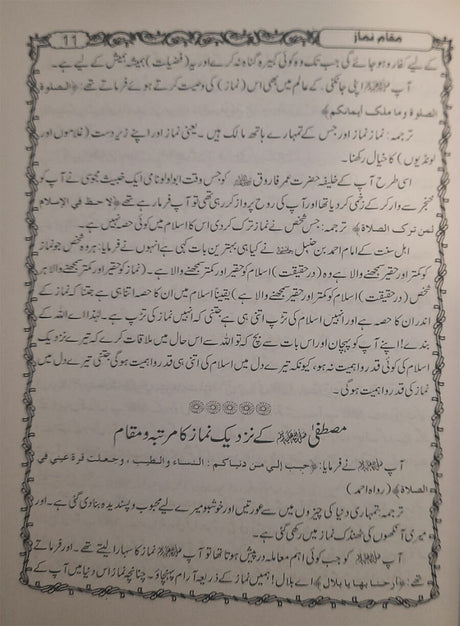 مقام نماز
11
کے لیے کفارہ ہو جائے گی جب تک وہ کوئی کبیرہ گناہ نہ کرے اور یہ (فضیلت) ہمیشہ ہمیش کے لیے ہے۔
آپ ﷺ اپنی جانکنی کے عالم میں بھی اس (نماز) کی وصیت کرتے ہوئے فرماتے تھے: ﴿الصلوة
الصلوة وما ملكت ايمانكم﴾
ترجمہ: نماز نماز اور جس کے تمہارے ہاتھ مالک ہیں۔ یعنی نماز اور اپنے زیردست (غلاموں اور
لونڈیوں) کا خیال رکھنا۔
اسی طرح آپ کے خلیفہ حضرت عمر فاروق کو جس وقت ابولولو نامی ایک خبیث مجوسی نے آپ کو
خنجر سے وار کر کے زخمی کر دیا تھا اور آپ کی روح پرواز کر رہی تھی تو آپ فرما رہے تھے ﴿لا حظ في الإسلام
لمن ترك الصلاة﴾ ترجمہ: جس شخص نے نماز ترک کر دی اس کا اسلام میں کوئی حصہ نہیں ہے۔
اہل سنت کے امام احمد بن حنبل نے کیا ہی بہترین بات کہی ہے انہوں نے فرمایا: ہر وہ شخص جو نماز
کو کمتر اور حقیر سمجھنے والا ہے وہ (درحقیقت) اسلام کو حقیر اور کمتر سمجھنے والا ہے۔ (نماز کو حقیر اور کمتر سمجھنے والا ہر
شخص (درحقیقت) اسلام کو کمتر اور حقیر سمجھنے والا ہے) یقیناً اسلام میں ان کا حصہ اتنا ہی ہے جتنا کہ نماز کے
اندر ان کا حصہ ہے اور انہیں اسلام کی تڑپ اتنی ہی ہے جتنی کہ انہیں نماز کی تڑپ ہے۔ لہذا اے اللہ کے
بندے! اپنے آپ کو پہچان اور اس بات سے بچ کہ تو اللہ سے اس حال میں ملاقات کرے کہ تیرے نزدیک
اسلام کی کوئی قدر و اہمیت نہ ہو، کیونکہ تیرے دل میں اسلام کی اتنی ہی قدر و اہمیت ہوگی جتنی تیرے دل میں
نماز کی قدر و اہمیت ہوگی۔
مصطفیٰ ﷺ کے نزدیک نماز کا مرتبہ و مقام
آپ ﷺ نے فرمایا: ﴿حبب إلي من دنياكم : النساء والطيب ، وجعلت قرة عيني في
الصلاة﴾ (رواه احمد)
ترجمہ: تمہاری دنیا کی چیزوں میں سے عورتیں اور خوشبو میرے لیے محبوب و پسندیدہ بنا دی گئی ہے۔ اور
میری آنکھوں کی ٹھنڈک نماز میں رکھی گئی ہے۔
آپ ﷺ کو جب کوئی اہم معاملہ درپیش ہوتا تھا تو آپ ﷺ نماز کا سہارا لیتے تھے۔ اور فرماتے
تھے: ﴿ارحنا بها يا بلال﴾ اے بلال! ہمیں نماز کے ذریعہ آرام پہنچاؤ۔ چنانچہ نماز اس دنیا میں آپ کے